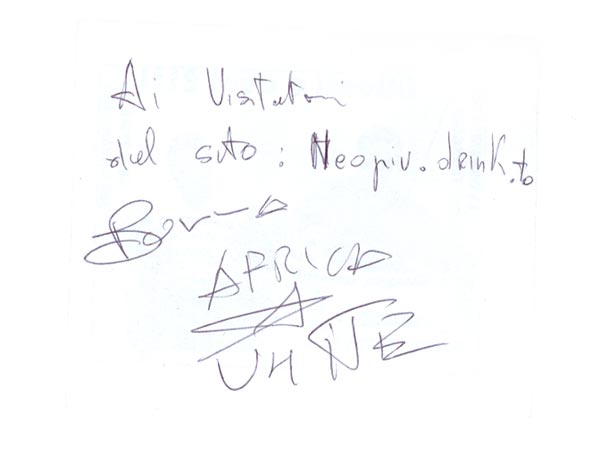 Ai Visitatori
del sito: Neopiv.drink.to
AFRICA
UNITE